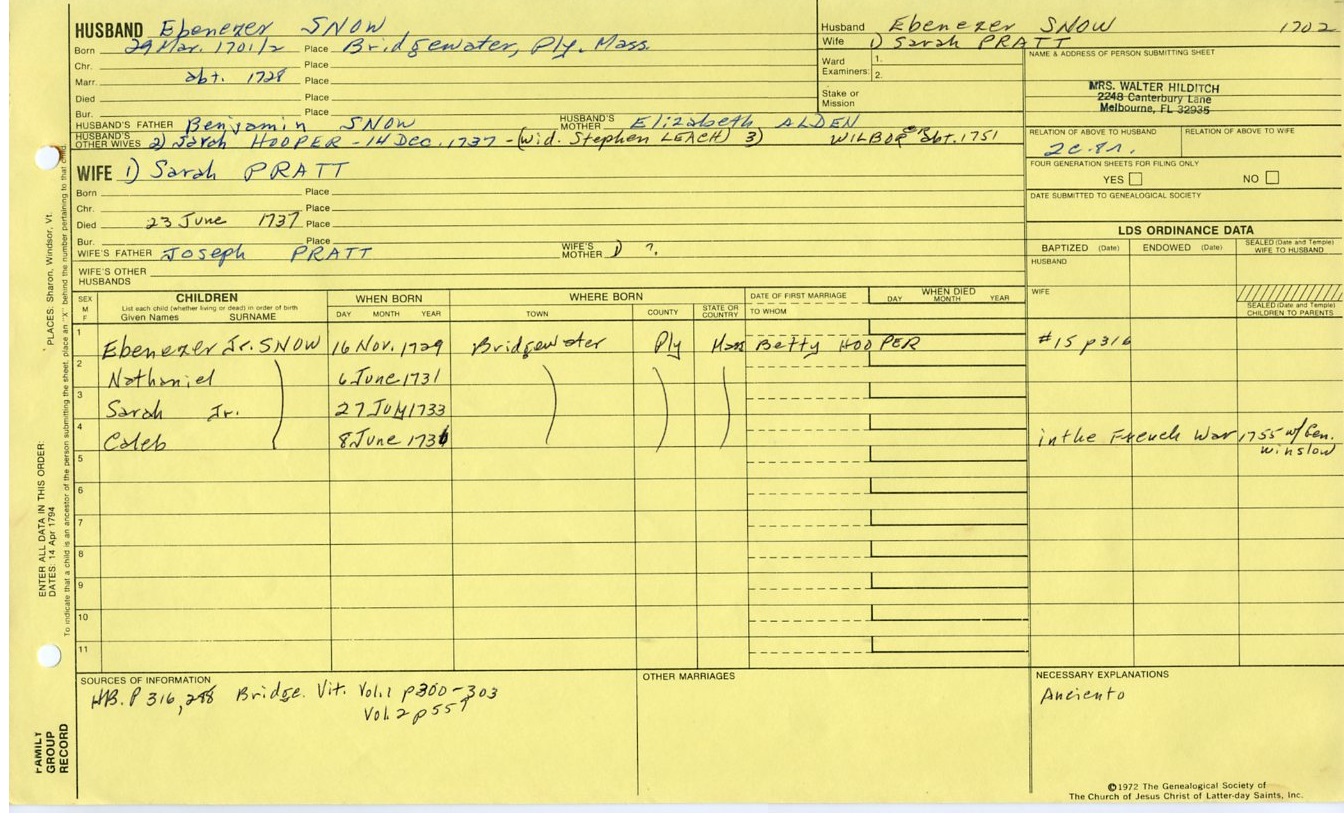 HUSBAND Ebenezer SNOW
Born 29 Mar. 1701/2 Place Bridgewater, Ply. Mass.
Chr. Place
Marr. abt. 1728 Place
Died Place
Bur. Place
HUSBAND'S FATHER Benjamin SNOW HUSBAND'S MOTHER Elizabeth ALDEN
HUSBAND'S OTHER WIVES 2) Sarah HOOPER - 14 Dec. 1737 - (wid. Stephen LEACH) 3) WILBOR abt. 1751
Husband Ebenezer SNOW 1702
Wife 1) Sarah PRATT
Ward Examiners: 1.
2.
Stake or Mission
NAME & ADDRESS OF PERSON SUBMITTING SHEET
MRS. WALTER HILDITCH
2248 Canterbury Lane
Melbourne, FL 32935
RELATION OF ABOVE TO HUSBAND RELATION OF ABOVE TO WIFE
2c.8r.
FOUR GENERATION SHEETS FOR FILING ONLY
YES NO
DATE SUBMITTED TO GENEALOGICAL SOCIETY
WIFE 1) Sarah PRATT
Born Place
Chr. Place
Died 23 June 1737 Place
Bur. Place
WIFE'S FATHER Joseph PRATT WIFE'S MOTHER 1) ?.
WIFE'S OTHER HUSBANDS
LDS ORDINANCE DATA
BAPTIZED (Date) ENDOWED (Date) SEALED (Date and Temple) WIFE TO HUSBAND
HUSBAND
WIFE
SEALED (Date and Temple) CHILDREN TO PARENTS
SEX M F CHILDREN WHEN BORN WHERE BORN DATE OF FIRST MARRIAGE WHEN DIED
List each child (whether living or dead) in order of birth
Given Names SURNAME DAY MONTH YEAR TOWN COUNTY STATE OR COUNTRY TO WHOM DAY MONTH YEAR
1 Ebenezer Jr. SNOW 16 Nov. 1729 Bridgewater Ply Mass Betty HOOPER #15 p316
2 Nathaniel 6 June 1731
3 Sarah Jr. 27 July 1733
4 Caleb 8 June 1736 in the French War 1755 w/ Gen. Winslow
5
6
7
8
9
10
11
SOURCES OF INFORMATION
HB. P 316, 298 Bridge. Vit. Vol. 1 p300-303
Vol. 2 p557
OTHER MARRIAGES
NECESSARY EXPLANATIONS
Anciento
©1972 The Genealogical Society of
The Church of Jesus Christ of Latter-day Saints, Inc.
PLACES: Sharon, Windsor, Vt.
ENTER ALL DATA IN THIS ORDER:
DATES: 14 Apr 1794
To indicate that a child is an ancestor of the person submitting the sheet, place an "X" behind the number pertaining to that child.
FAMILY
GROUP
RECORD